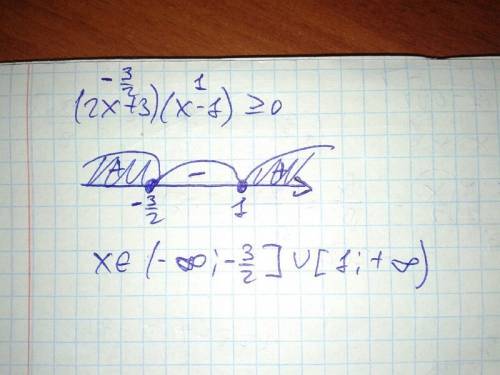 -3/2 1
(2x+3)(x-1) ≥ 0
+ - +
-3/2 1
x∈(-∞;-3/2]∪[1;+∞)